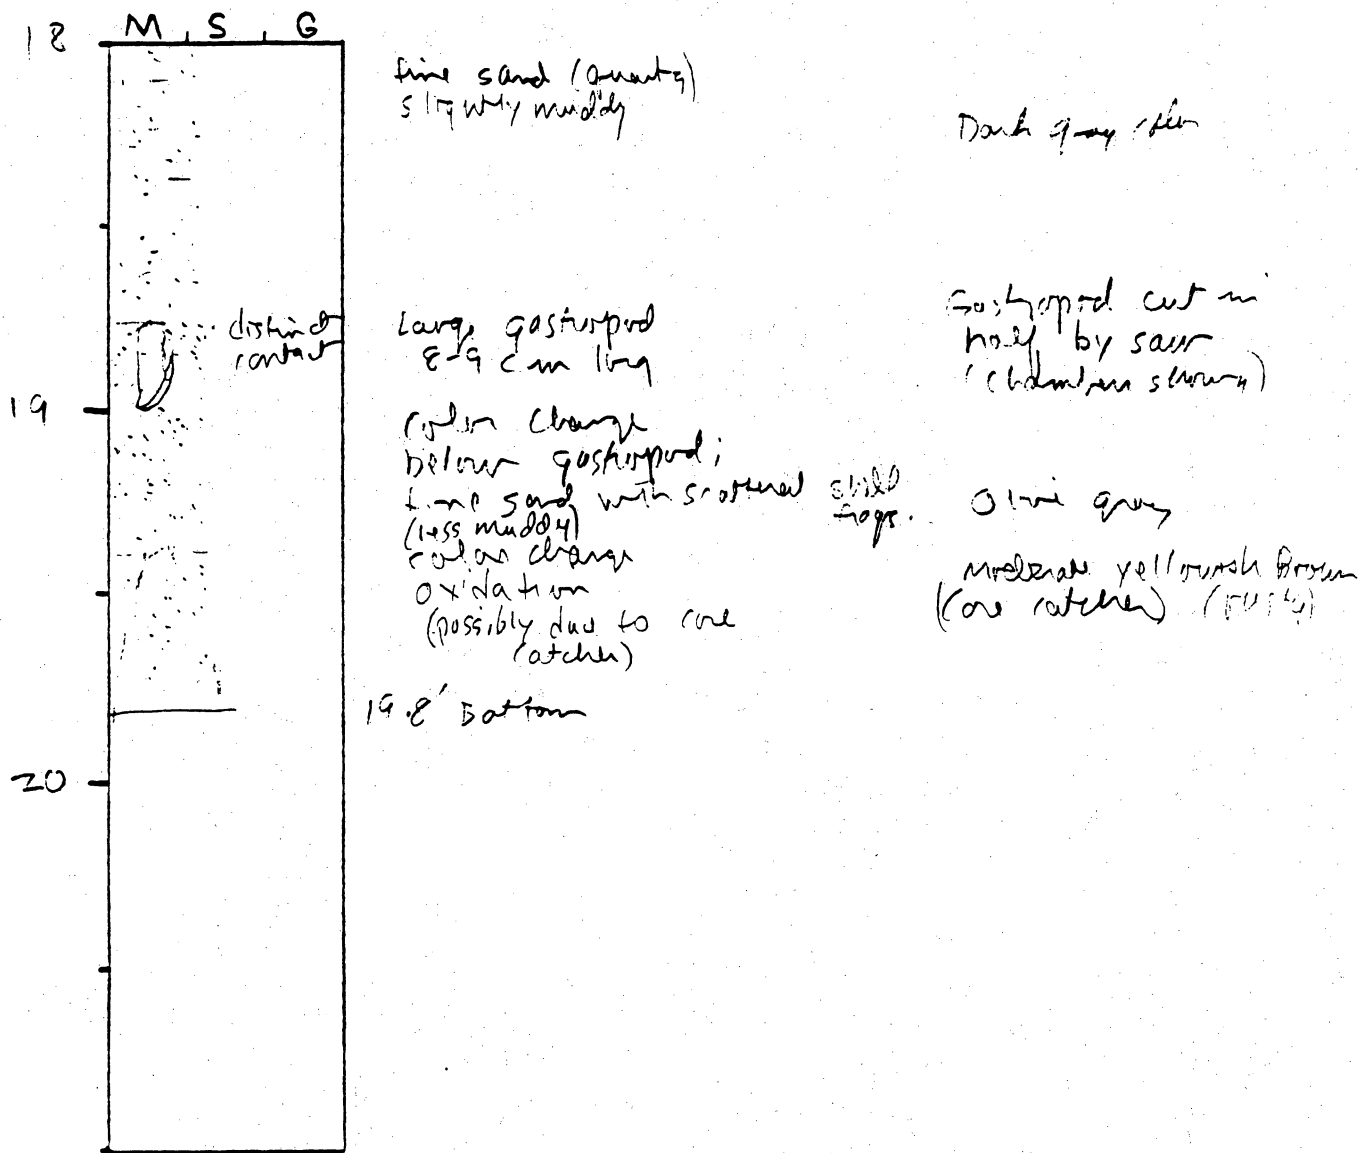 M S G
18
fine sand (quartz)
slightly muddy
Dark gray color
distinct
contact
Large gastropod
8-9 cm long
Gastropod cut in
half by saw
(chambers showing)
19
color change
below gastropod;
fine sand with scattered shell
frags.
(less muddy)
Olive gray
color change
oxidation
(possibly due to core
catcher)
Moderate yellowish Brown
(core catcher) (rusty)
19.8' Bottom
20